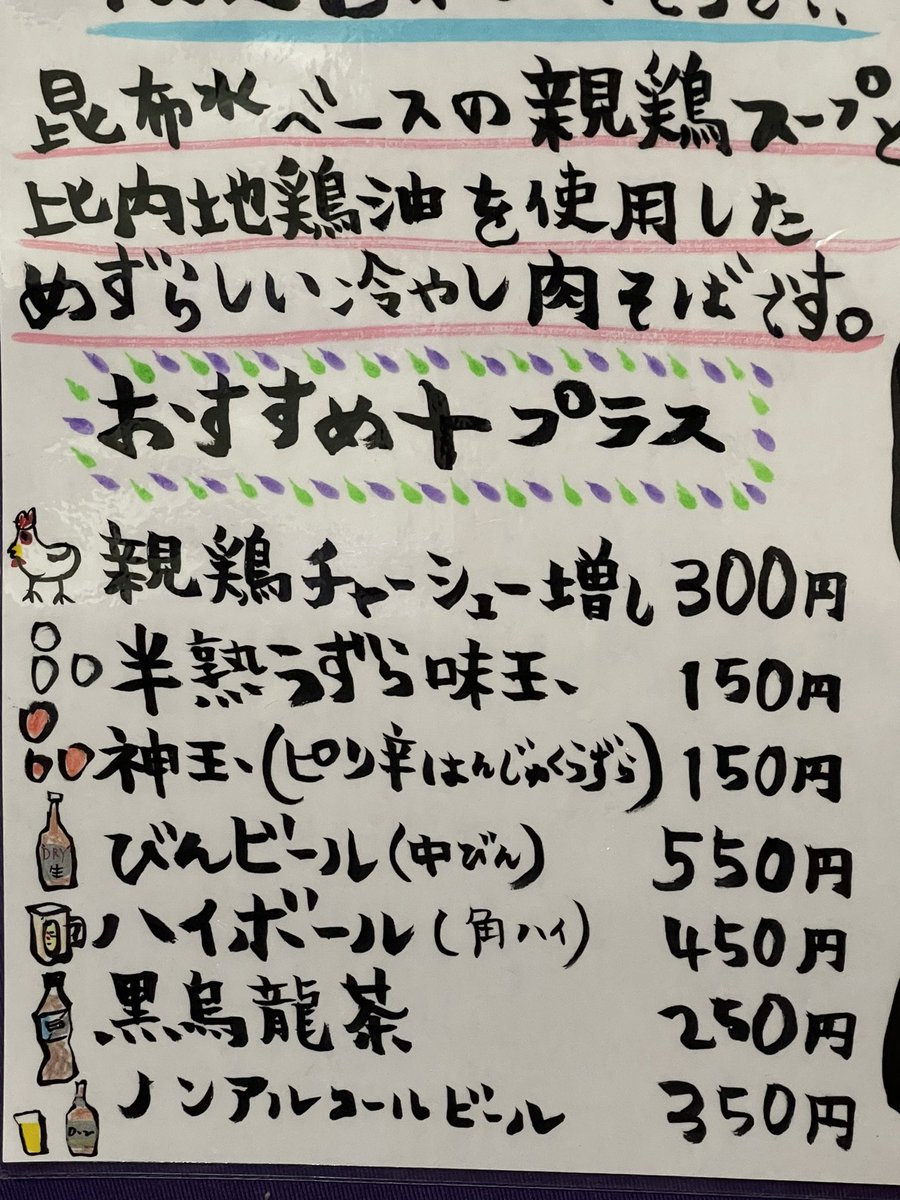 昆布水ベースの親鶏スープと
比内地鶏油を使用した
めずらしい冷やし肉そばです。
おすすめ+プラス
親鶏チャーシュー増し 300円
半熟うずら味玉 150円
神玉(ピリ辛はんじゅくうずら) 150円
DRY
生
びんビール(中びん) 550円
ハイボール(角ハイ) 450円
黒烏龍茶 250円
ノンアルコールビール 350円